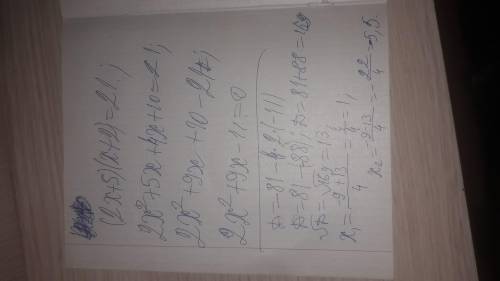 (2x+5)(x+2)=21;
2x²+5x+4x+10=21;
2x²+9x+10-21=;
2x²+9x-11=0
D=81-4·2·(-11)
D=81+88; D=81+88=169
√D=√169=13;
x₁=(-9+13)/4=4/4=1;
x₂=(-9-13)/4=-22/4=-5,5.